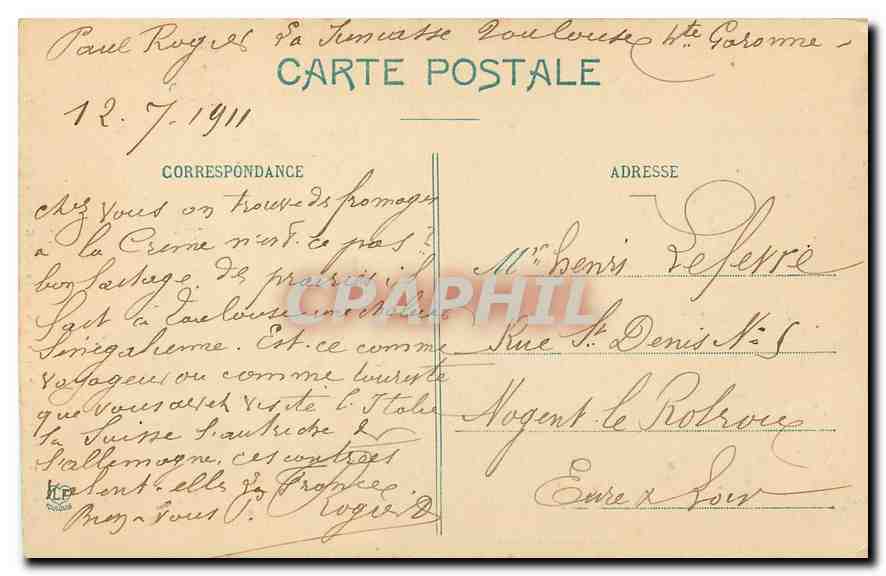 Paul Rogier La Juncasse Toulouse Hte Garonne -
CARTE POSTALE
12. 7. 1911
CORRESPONDANCE
chez vous on trouve ds fromages
à la Crème n'est-ce pas?
bon laitage, de prairies il
fait à Toulouse une chaleur
Sénégalienne. Est-ce comme
voyageur ou comme touriste
que vous avez visité l'Italie
la Suisse l'autriche &
l'allemagne, ces contrées
valent-elles la France.
Bien à vous! Rogier
ADRESSE
Mr. henri Lefevre
Rue St Denis No 5
Nogent-le Rotrou
Eure & Loir
CPAPHIL